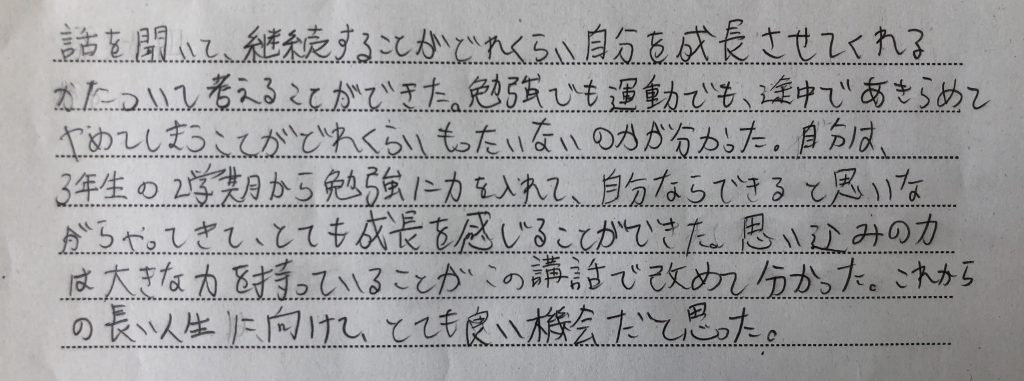 話を聞いて、継続することがどれくらい自分を成長させてくれる
かについて考えることができた。勉強でも運動でも、途中であきらめて
やめてしまうことがどれくらいもったいないのかが分かった。自分は、
3年生の2学期から勉強に力を入れて、自分ならできると思いな
がらやってきて、とても成長を感じることができた。思い込みの力
は大きな力を持っていることがこの講話で改めて分かった。これから
の長い人生に向けて、とても良い機会だと思った。